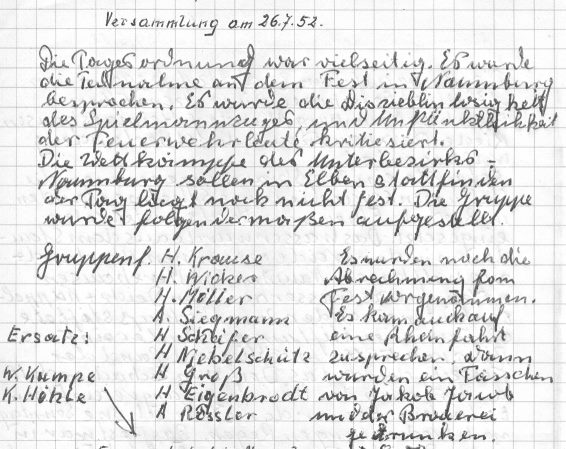 Versammlung am 26.7.52.
Die Tagesordnung war vielseitig. Es wurde
die Teilnahme an dem Fest in Naumburg
besprochen. Es wurde die Disziplinlosigkeit
des Spielmannzuges, und Unpünktlichkeit
der Feuerwehrleute kritiesiert.
Die Wettkämpfe des Unterbezirks-
Naumburg sollen in Elben stattfinden
der Tag liegt noch nicht fest. Die Gruppe
wurde folgendermaßen aufgestellt.
Gruppenf. H. Krause
H. Wicker
H. Möller
A. Siegmann
H Schäfer
H Niebelschütz
H Groß
H Eigenbrodt
A Rössler
Ersatz:
W. Kumpe
K. Höhle
Es wurden noch die
Abrechnung vom
Fest vorgenommen.
Es kam auch auf
eine Rheinfahrt
zusprechen, dann
wurden ein Fässchen
von Jakob Jacob
und der Brauerei
getrunken.